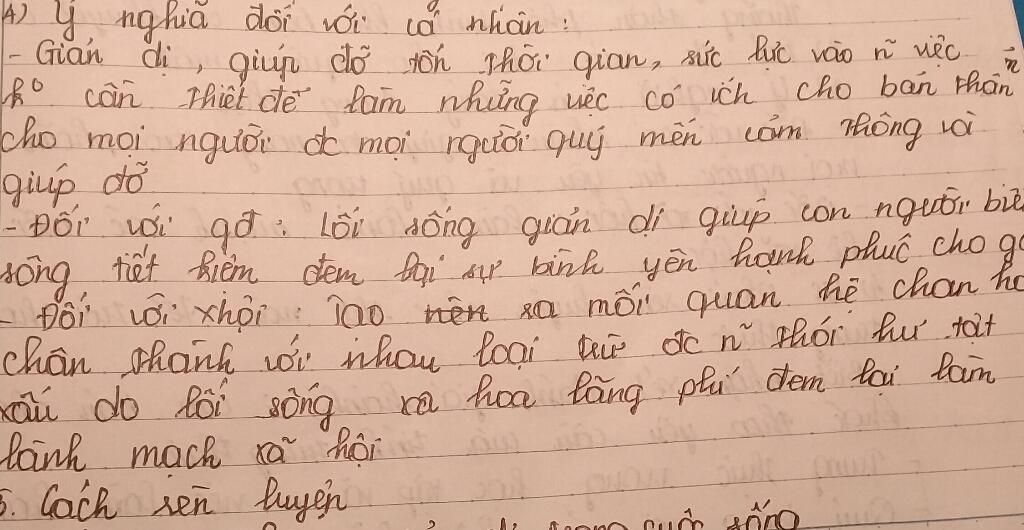 4) Ý nghĩa đối với cá nhân:
- Giản dị, giúp đỡ tốn thời gian, sức lực vào n~ việc
k° cần thiết để làm những việc có ích cho bản thân
cho mọi người đc mọi người quý mến cảm thông và
giúp đỡ
- Đối với gđ: Lối sống giản dị giúp con người biế
sống tiết kiệm đem lại sự bình yên hạnh phúc cho gđ
- Đối với xhội: Tạo nên ra mối quan hệ chan ho
chân thành với nhau loại trừ đc n~ thói hư tật
xấu do lối sống xa hoa lãng phí đem lại làm
lành mạch xã hội
5. Cách rèn luyện
trong cuộc sống